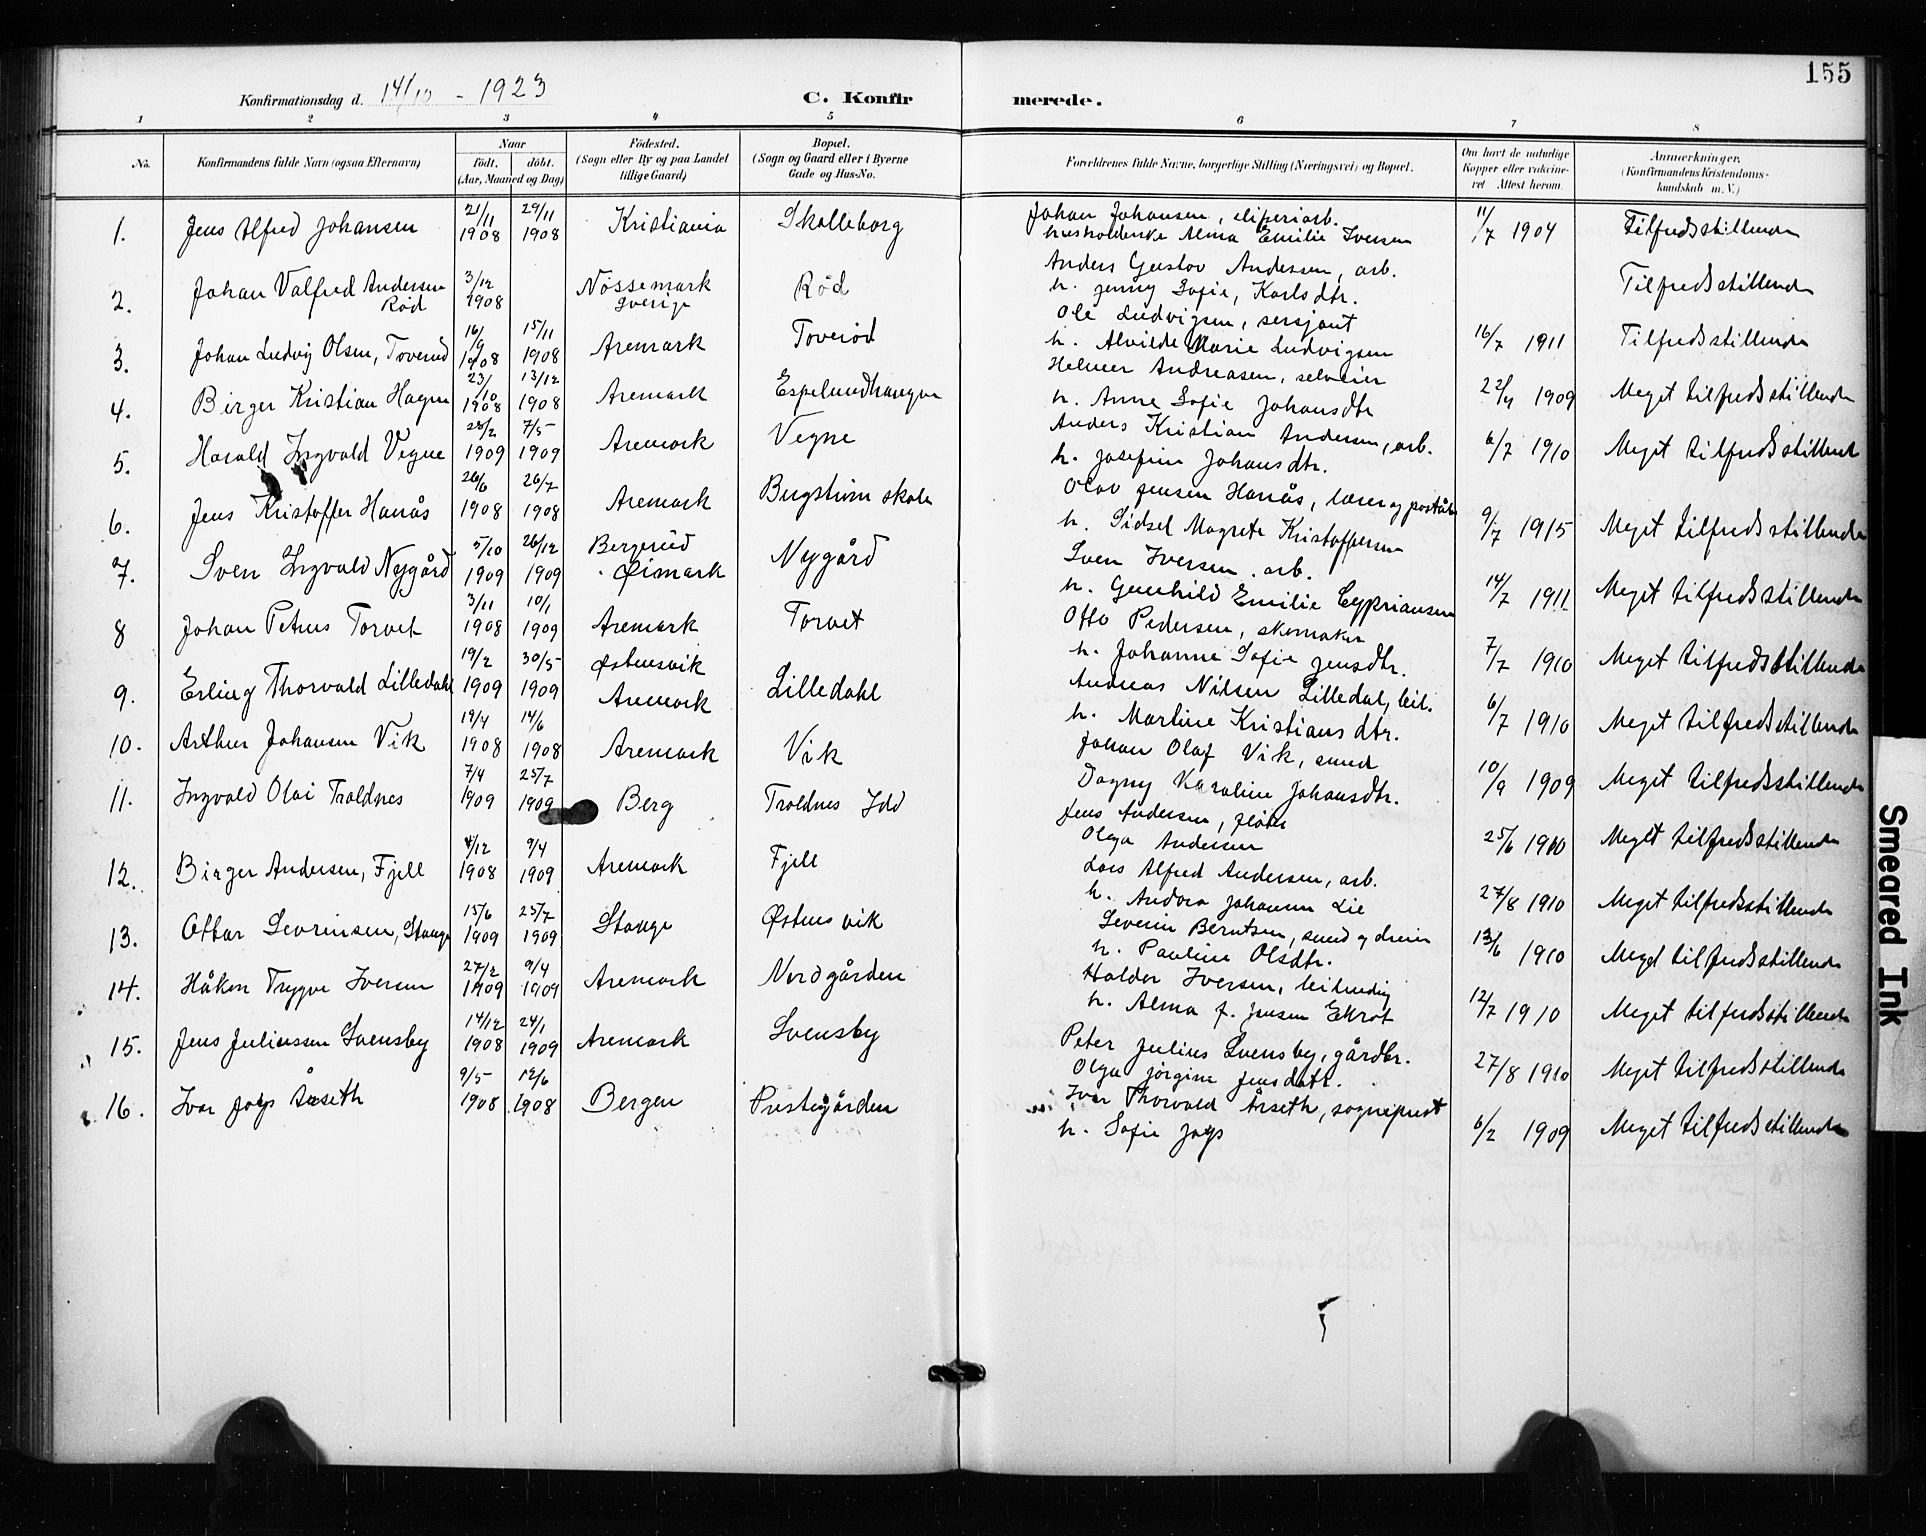 155
Konfirmationsdag d. 14/10 - 1923
C. Konfirmerede.
1 2 3 4 5 6 7 8
No.
Konfirmandens fulde Navn (ogsaa Efternavn)
Naar
født. døbt.
(Aar, Maaned og Dag)
Fødested.
(Sogn eller By og paa Landet
tillige Gaard)
Bopæl.
(Sogn og Gaard eller i Byerne
Gade og Hus-No.
Forældrenes fulde Navne, borgerlige Stilling (Næringsvei) og Bopæl.
Om havt de naturlige
Kopper eller vakcine-
ret Attest herom.
Anmærkninger.
(Konfirmandens Kristendoms-
kundskab m. V.)
1. Jens Alfred Johansen 21/11 1908 29/11 1908 Kristiania Skolleborg
Johan Johansen, sliperiarb.
husholderske Alma Emilie Iversen 11/7 1904 Tilfredsstillende
2. Johan Valfred Andersen Rød 3/12 1908 Nössemark Sverige Rød
Anders Gustav Andersen, arb.
h. Jenny Sofie, Karlsdtr. Tilfredsstillende
3. Johan Ludvig Olsen, Toverud 16/9 1908 15/11 1908 Aremark Toverød
Ole Ludvigsen, sersjant
h. Alvilde Marie Ludvigsen 16/7 1911 Tilfredsstillende
4. Birger Kristian Hagen 23/10 1908 13/12 1908 Aremark Espelundhaugen
Helmer Andreasen, selveier
h. Anne Sofie Johansdtr 22/4 1909 Meget tilfredsstillende
5. Harald Ingvald Vegne 28/2 1909 7/5 1909 Aremark Vegne
Anders Kristian Andersen, arb.
h. Josefine Johansdtr. 6/7 1910 Meget tilfredsstillende
6. Jens Kristoffer Hanås 26/6 1908 26/7 1908 Aremark Bergstrøm skole
Olav Jensen Hanås, lærer og poståb.
h. Sidsel Magrete Kristoffersen 9/7 1915 Meget tilfredsstillende
7. Sven Ingvald Nygård 5/10 1909 26/12 1909 Bergerud Øimark Nygård
Sven Iversen. arb.
h. Gunhild Emilie Cypriansen 14/7 1911 Meget tilfredsstillende
8 Johan Petrus Torvet 3/11 1908 10/1 1909 Aremark Torvet
Otto Pedersen, skomaker
h. Johanne Sofie Jensdtr. 7/7 1910 Meget tilfredsstillende
9. Erling Thorvald Lilledahl 19/2 1909 30/5 1909 Østensvik Aremark Lilledahl
Andreas Nilsen Lilledal, leil.
h. Martine Kristiansdtr. 6/7 1910 Meget tilfredsstillende
10. Arthur Johansen Vik 19/4 1908 14/6 1908 Aremark Vik
Johan Olaf Vik, smed
Dagny Karoline Johansdtr. 10/9 1909 Meget tilfredsstillende
11. Ingvald Olai Traldnes 7/4 1909 25/7 1909 Berg Traldnes Idd
Jens Andersen, fløter
Olga Andersen 25/6 1910 Meget tilfredsstillende
12. Birger Andersen, Fjell 4/12 1908 9/4 1909 Aremark Fjell
Lars Alfred Andersen, arb.
h. Andora Johanne Lie 27/8 1910 Meget tilfredsstillende
13. Ottar Sevrinsen, Stange 15/6 1909 25/7 1909 Stange Østensvik
Severin Berntsen, smed og dreier
h. Pauline Olsdtr. 13/6 1910 Meget tilfredsstillende
14. Håkon Trygve Iversen 27/2 1909 9/4 1909 Aremark Nordgården
Haldor Iversen, leilending
h. Alma f. Jensen Ekrot 12/7 1910 Meget tilfredsstillende
15. Jens Juliussen Svensby 14/12 1908 24/1 1909 Aremark Svensby
Peter Julius Svensby, gårdbr.
Olga Jørgine Jensdatr. 27/8 1910 Meget tilfredsstillende
16. Ivar Årseth 9/5 1908 12/6 1908 Bergen Prestegården
Ivar Thorvald Årseth, sogneprest
h. Sofie 6/2 1909 Meget tilfredsstillende
Smeared Ink